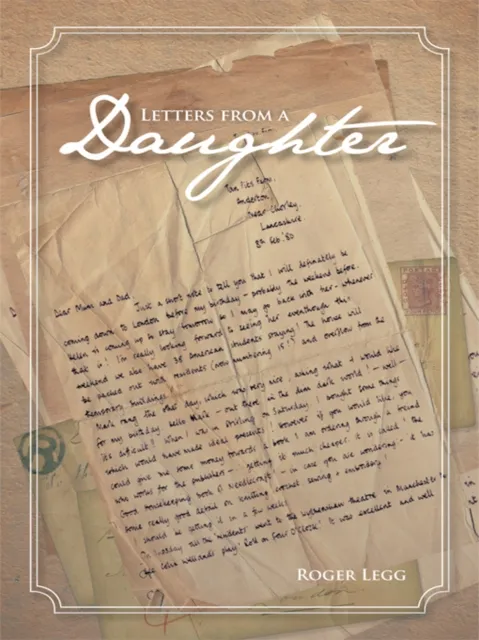 LETTERS FROM A
Daughter
Tan Pits Farm,
Anderton,
Near Chorley,
Lancashire.
8th Feb. '80
Dear Mum and Dad,
Just a short note to tell you that I will definately be
coming down to London before my birthday - probably the weekend before.
Helen is coming up to stay tomorrow & I may go back with her - whenever
that is! I'm really looking forward to seeing her eventhough this
weekend we also have 38 American students staying! The house will
be packed out with residents (now numbering 18!) and overflow from the
temporary buildings.
Mark rang the other day which was very nice, asking what I would like
for my birthday. Hello Mark - out there in the dim dark world! - well -
it's difficult! When I was in on Saturday I bought some things
which would have made ideal presents! However if you would like, you
could give me some money towards a book I am ordering through a friend
who works for the publishers - getting it much cheaper. It is called 'the
Good Housekeeping book of Needlecraft' - in case you are wondering - & has
some really good detail on knitting crochet sewing & embroidery!
should be getting it in a few weeks.
On Tuesday all the 'students' went to the Wythenshawe theatre in Manchester to
see Colin Wellands play 'Roll on Four O'Clock'. It was excellent and well
ROGER LEGG